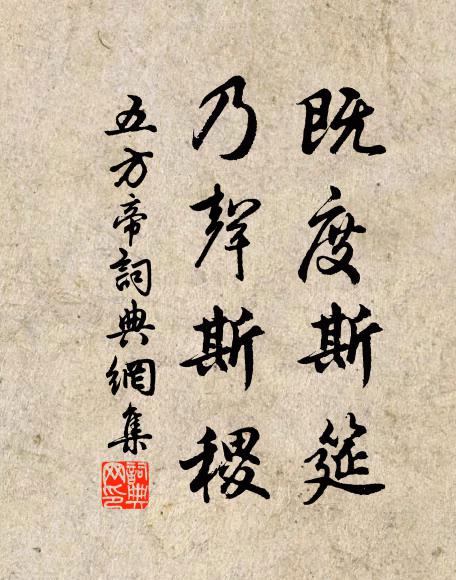 既度斯筵
乃聲斯稷
五方帝詞典網集
詞典网印